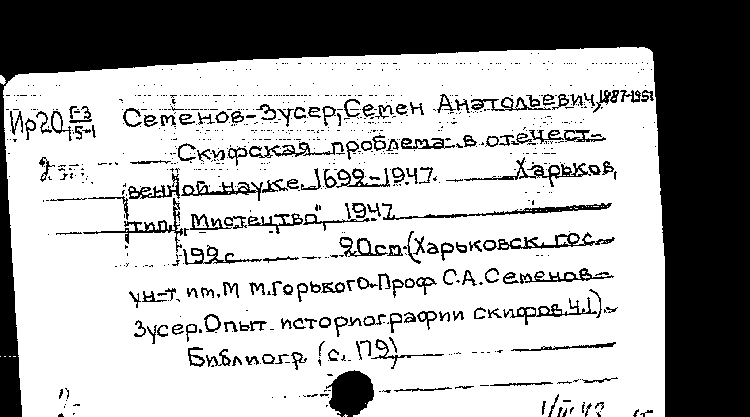 Ир20 Г-3 / 15-1 Семенов-Зусер, Семен Анатольевич, 1887-1951
2 эк. Скифская проблема в отечест-
венной науке. 1692-1947. Харьков,
тип. „Мистецтво", 1947
199 с 20см (Харьковск. гос.
ун-т им. М. Горького. Проф. С.А. Семенов-
Зусер. Опыт историографии скифов. Ч.1).
Библиогр. (с. 179)